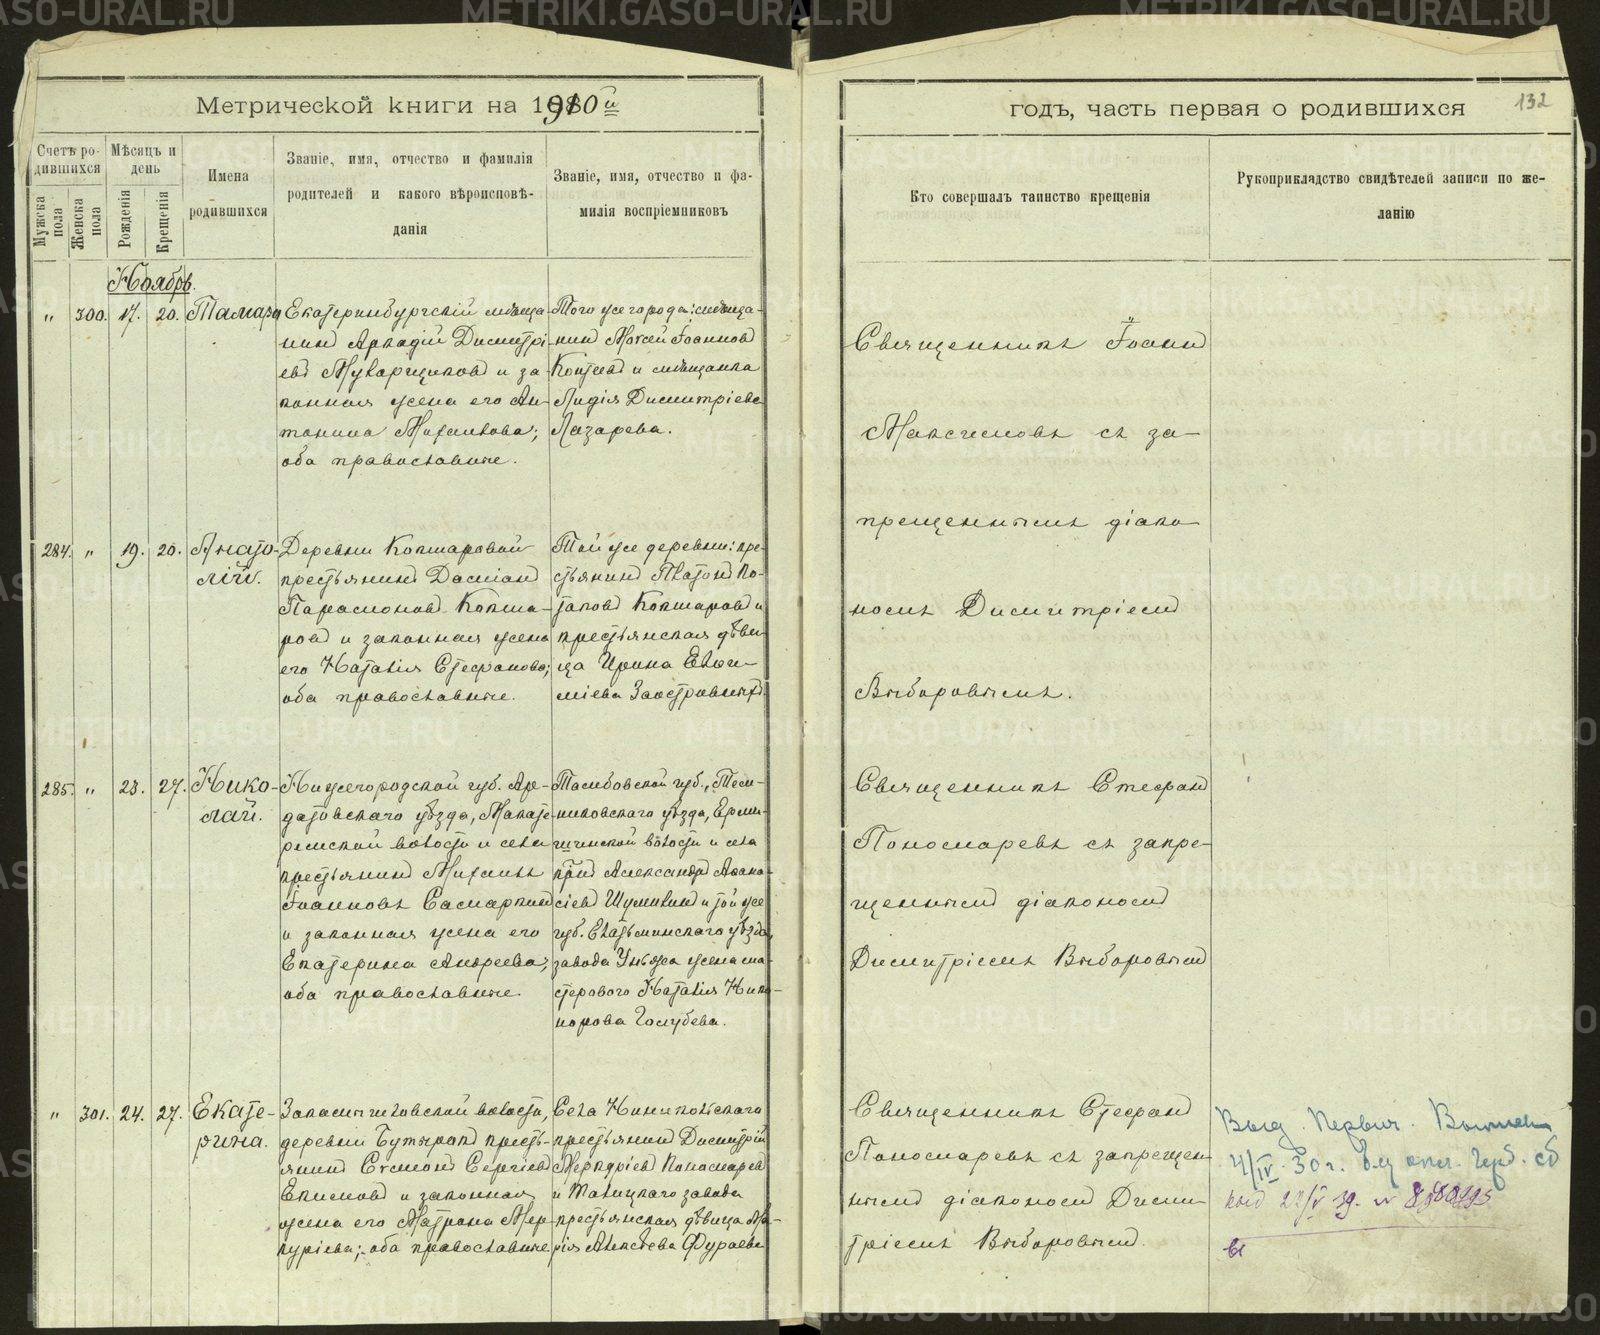 METRIKI.GASO-URAL.RU
METRIKI.GASO-URAL.RU
Метрической книги на 1910 й
годъ, часть первая о родившихся
132
Счетъ ро-
дившихся
Мужска пола
Женска пола
Мѣсяцъ и
день
Рожденія
Крещенія
Имена
родившихся
Званіе, имя, отчество и фамилія
родителей и какого вѣроисповѣ-
данія
Званіе, имя, отчество и фа-
милія воспріемниковъ
Кто совершалъ таинство крещенія
Рукоприкладство свидѣтелей записи по же-
ланію
Ноябрь.
„ 300. 17. 20. Тамара
Екатеринбургскій мѣща-
нинъ Аркадій Димитрі-
евъ Мухарщиковъ и за-
конная жена его Ан-
тонина Михаилова;
оба православные.
Того же города: мѣща-
нинъ Моѵсей Іоанновъ
Коптевъ и мѣщанка
Лидія Димитріева
Лазарева.
Священникъ Іоаннъ
Максимовъ съ за-
прещеннымъ діако-
номъ Димитріемъ
Выборовымъ.
284. „ 19. 20. Анато-
лій.
Деревни Кокшаровой
крестьянинъ Даміанъ
Парамоновъ Кокша-
ровъ и законная жена
его Наталія Стефанова;
оба православные.
Той же деревни: кре-
стьянинъ Платонъ По-
таповъ Кокшаровъ и
крестьянская дѣви-
ца Ирина Евѳи-
міева Заостровныхъ.
285. „ 23. 27. Нико-
лай.
Нижегородской губ. Ар-
датовскаго уѣзда, Макате-
лемской волости и села
крестьянинъ Михаилъ
Іоанновъ Самаркинъ
и законная жена его
Екатерина Андреева;
оба православные.
Тамбовской губ., Тем-
никовскаго уѣзда, Ерми-
шинской волости и села
кр̃нъ Александръ Аѳана-
сіевъ Шумилинъ и той же
губ. Елатьминскаго уѣзда,
завода Унжа жена ма-
стерового Наталія Ника-
норова Голубева.
Священникъ Стефанъ
Пономаревъ съ запре-
щеннымъ діакономъ
Димитріемъ Выборовымъ
„ 301. 24. 27. Екате-
рина.
деревни Бутыровъ кресть-
янинъ Симеонъ Сергіевъ
Екимовъ и законная
жена его Матрона Мер-
куріева; оба православные
Села
крестьянинъ Димитрій
Меркуріевъ Пономаревъ
и Талицкаго завода
крестьянская дѣвица Ма-
рія Алексѣева Фураева
Священникъ Стефанъ
Пономаревъ съ запрещен-
нымъ діакономъ Дими-
тріемъ Выборовымъ.
Выд. Первич.
4/IV-30 г.